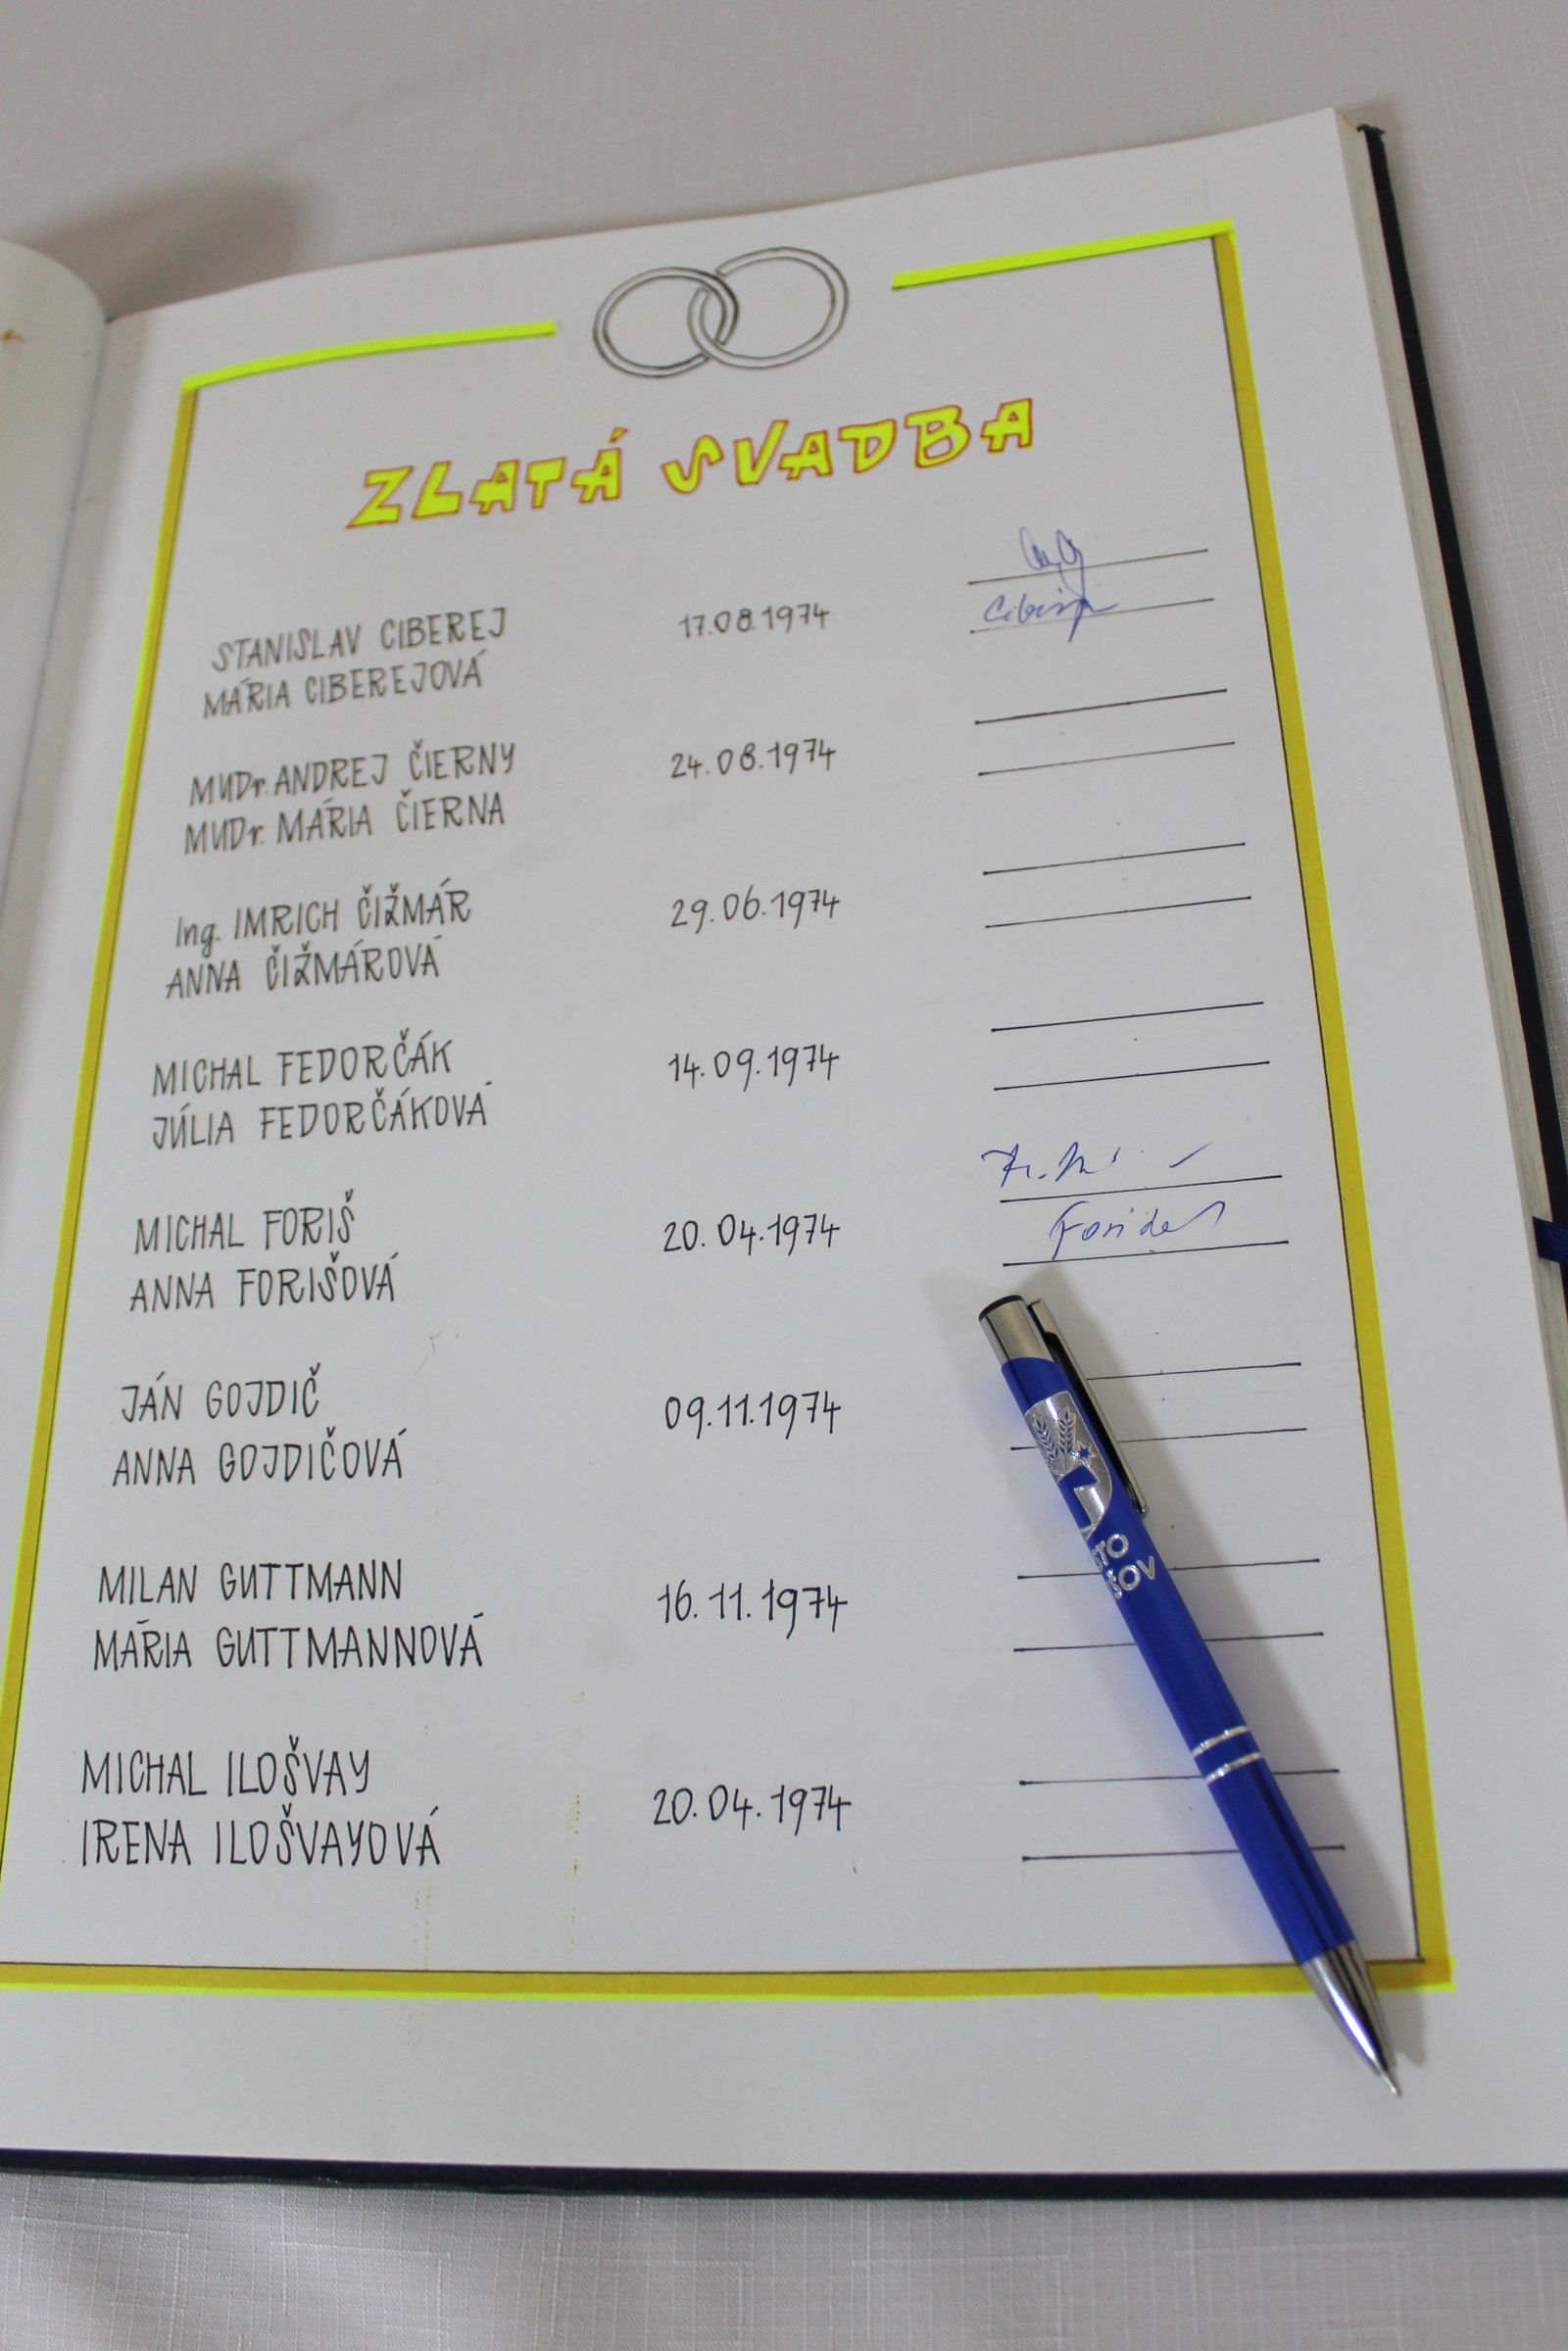 ZLATÁ SVADBA
STANISLAV CIBEREJ
MÁRIA CIBEREJOVÁ
17.08.1974
MUDr. ANDREJ ČIERNY
MUDr. MÁRIA ČIERNA
24.08.1974
Ing. IMRICH ČIŽMÁR
ANNA ČIŽMÁROVÁ
29.06.1974
MICHAL FEDORČÁK
JÚLIA FEDORČÁKOVÁ
14.09.1974
MICHAL FORIŠ
ANNA FORIŠOVÁ
20.04.1974
JÁN GOJDIČ
ANNA GOJDIČOVÁ
09.11.1974
MILAN GUTTMANN
MÁRIA GUTTMANNOVÁ
16.11.1974
MICHAL ILOŠVAY
IRENA ILOŠVAYOVÁ
20.04.1974